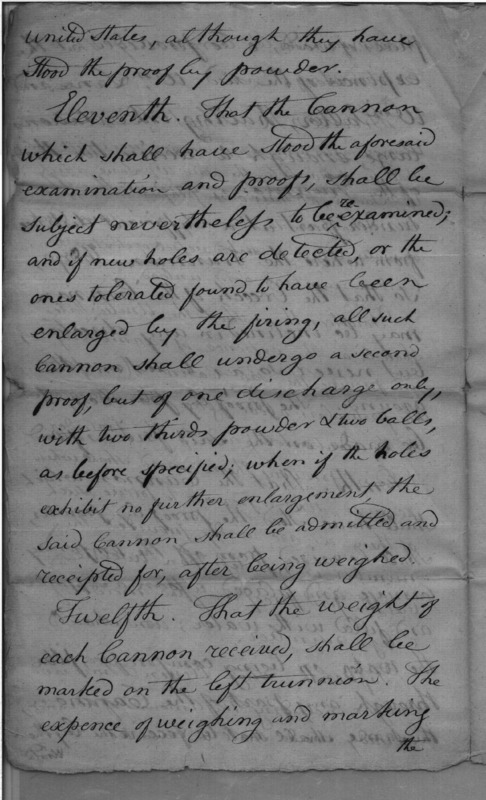 United States, although they have
stood the proof by powder.
Eleventh. That the Cannon
which shall have stood the aforesaid
examination and proofs, shall be
subject nevertheless to be re examined;
and if new holes are detected, or the
ones tolerated found to have been
enlarged by the firing, all such
Cannon shall undergo a second
proof, but of one discharge only,
with two thirds powder & two balls,
as before specified; when if the holes
exhibit no further enlargement, the
said Cannon shall be admitted and
receipted for, after being weighed.
Twelfth. That the weight of
each Cannon received, shall be
marked on the left trunnion. The
expence of weighing and marking
the